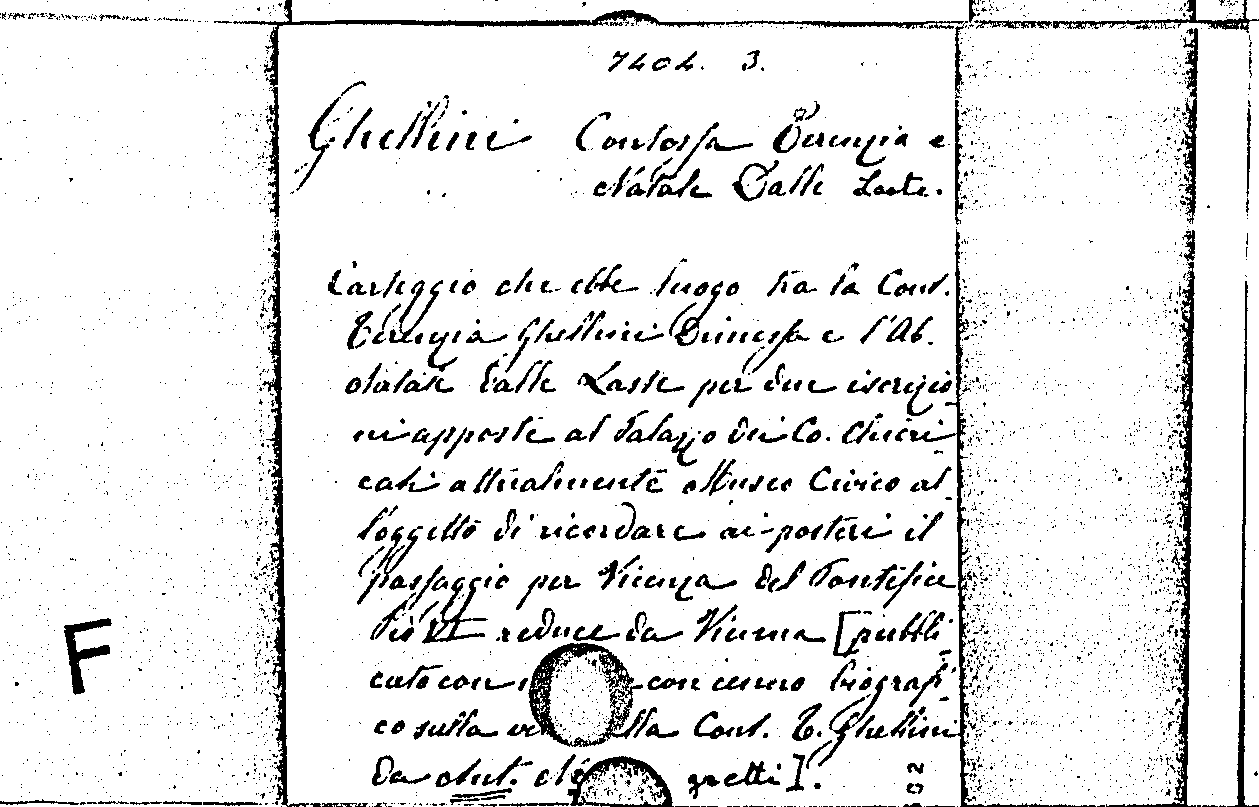 7404. 3.
Ghellini Contessa Terenzia e
Natale Dalle Laste.
Carteggio che ebbe luogo tra la Cont.
Terenzia Ghellini Dimessa e l'Ab.
Natale Dalle Laste per due iscrizio-
ni apposte al Palazzo dei Co. Chieri-
cati attualmente Museo Civico al-
l'oggetto di ricordare ai posteri il
passaggio per Vicenza del Pontefice
Pio VI reduce da Vienna [pubbli-
cato con con cenno biografi-
co sulla lla Cont. T. Ghellini
da Ant.
F